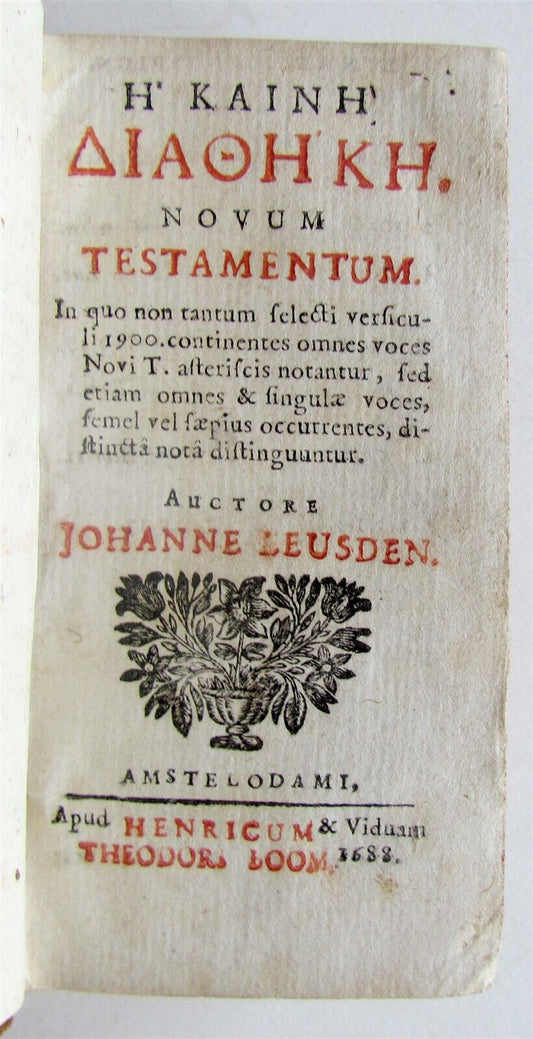 Η΄ ΚΑΙΝῊ
ΔΙΑΘΗ΄ΚΗ.
NOVUM
TESTAMENTUM.
In quo non tantum ſelecti verſicu-
li 1900. continentes omnes voces
Novi T. aſteriſcis notantur, ſed
etiam omnes & ſingulæ voces,
ſemel vel ſæpius occurrentes, di-
ſtinctâ notâ diſtinguuntur.
AUCTORE
JOHANNE LEUSDEN.
AMSTELODAMI,
Apud HENRICUM & Viduam
THEODORI BOOM. 1688.